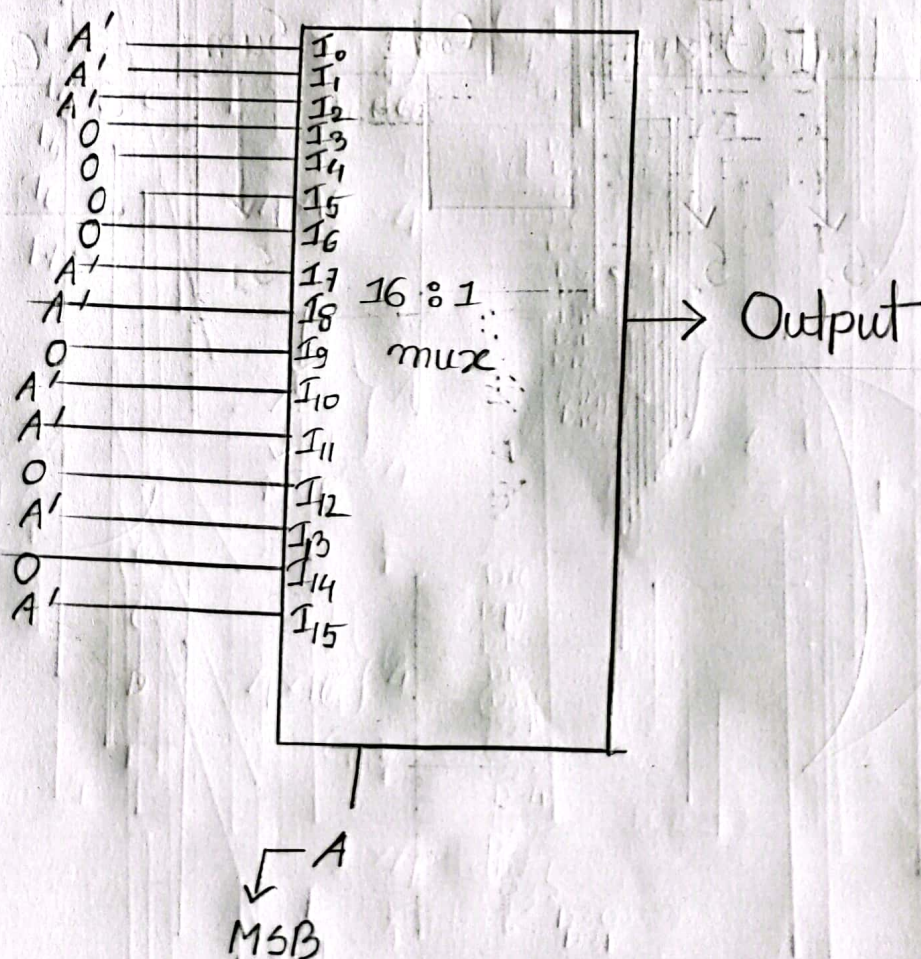 A' I0
A' I1
A' I2
0 I3
0 I4
0 I5
0 I6
A' I7
A' I8
0 I9
A' I10
A' I11
0 I12
A' I13
0 I14
A' I15
16:1
mux
Output
A
MSB